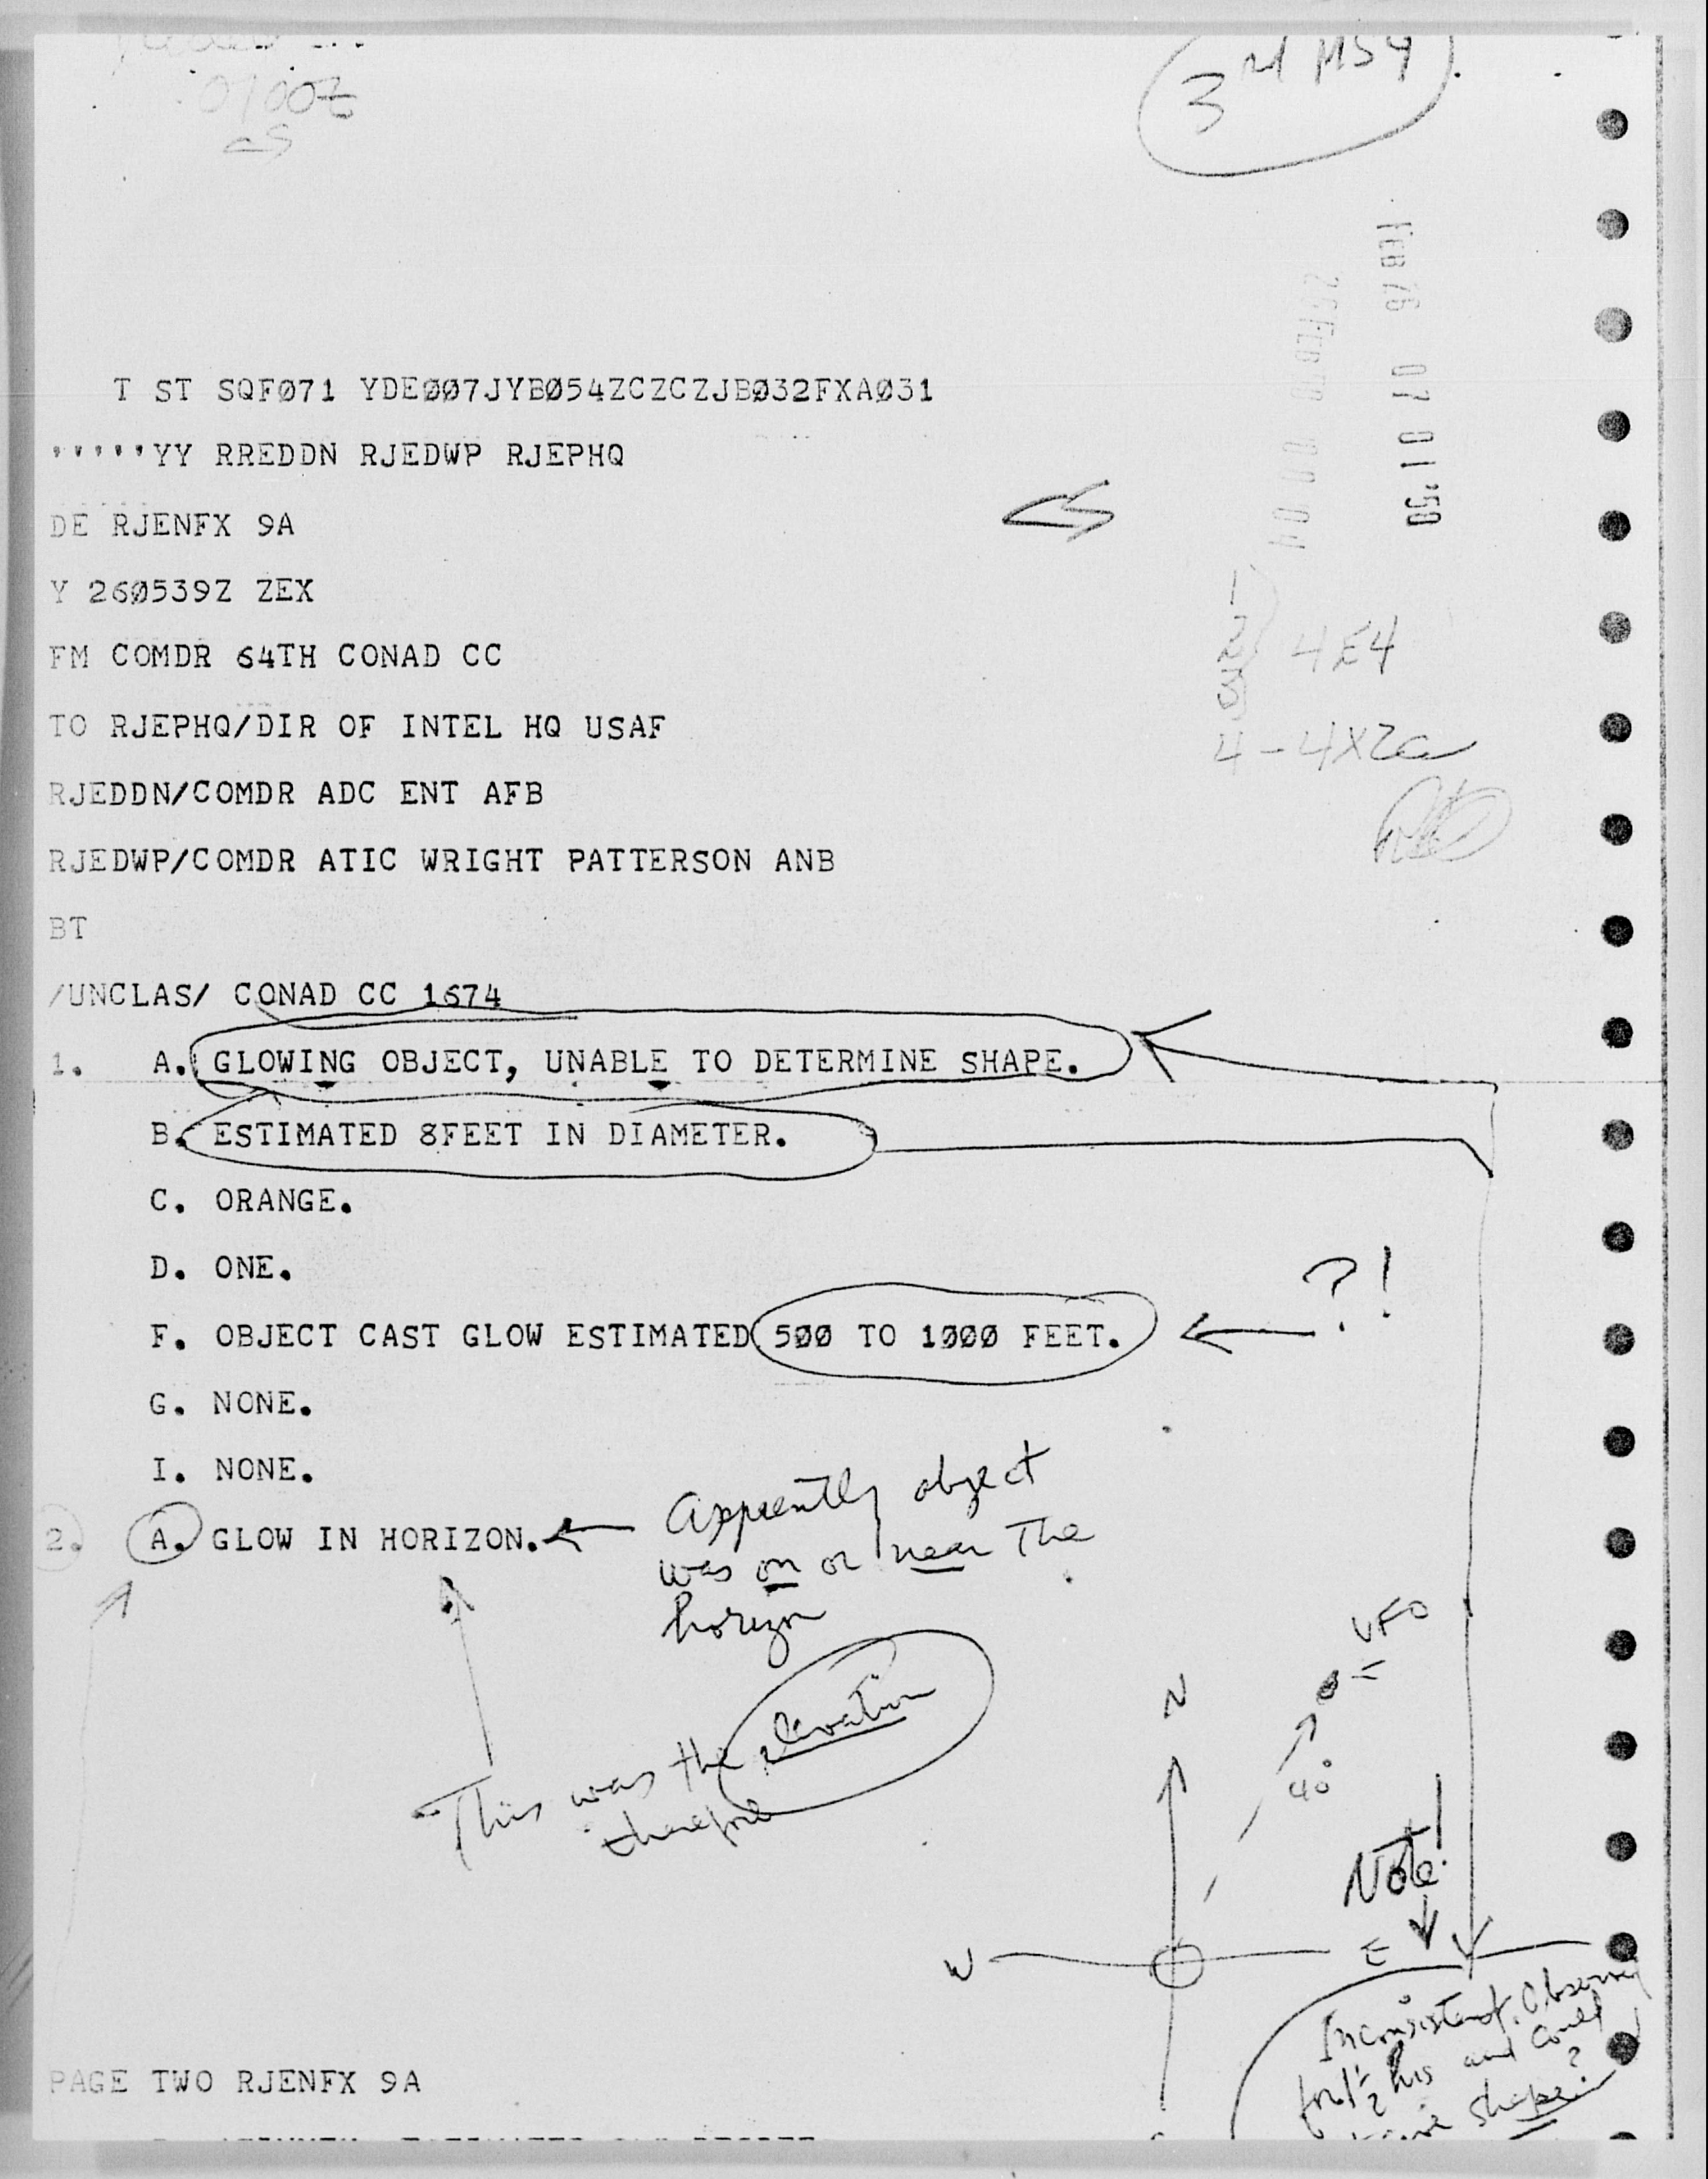 0700Z
3rd MSG
FEB 26 07 01 '58
T ST SQFØ71 YDEØØ7JYBØ54ZCZCZJBØ32FXAØ31
'''''YY RREDDN RJEDWP RJEPHQ
DE RJENFX 9A
Y 26Ø539Z ZEX
1
2
3
4E4
FM COMDR 64TH CONAD CC
TO RJEPHQ/DIR OF INTEL HQ USAF
4-4X2a
RJEDDN/COMDR ADC ENT AFB
RJEDWP/COMDR ATIC WRIGHT PATTERSON ANB
BT
/UNCLAS/ CONAD CC 1674
1. A. GLOWING OBJECT, UNABLE TO DETERMINE SHAPE.
B. ESTIMATED 8FEET IN DIAMETER.
C. ORANGE.
D. ONE.
?!
F. OBJECT CAST GLOW ESTIMATED 5ØØ TO 1ØØØ FEET.
G. NONE.
I. NONE.
2. A. GLOW IN HORIZON.
Apprently object
was on or near The
horizon
This was the elevation
therefore
UFO
N
40°
Note!
W
E
Inconsistent. Observed
for 1½ hrs and could
shape?
PAGE TWO RJENFX 9A